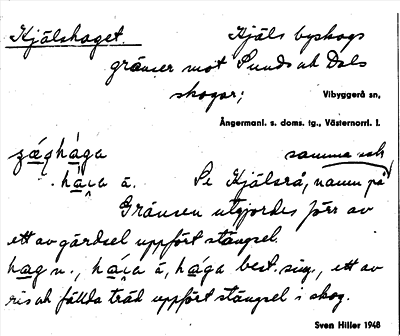 Kjälshaget. Kjäls byskogs
gränser mot Sunds och Dals
skogar;
Vibyggerå sn,
Ångermanl. s. doms. tg., Västernorrl. l.
samma och
ā. Se Kjälsrå, namn på
Gränsen utgjordes förr av
ett av gärdsel uppfört stängsel.
hag n., ā, best. sing., ett av
ris och fällda träd uppfört stängsel i skog.
Sven Hiller 1948